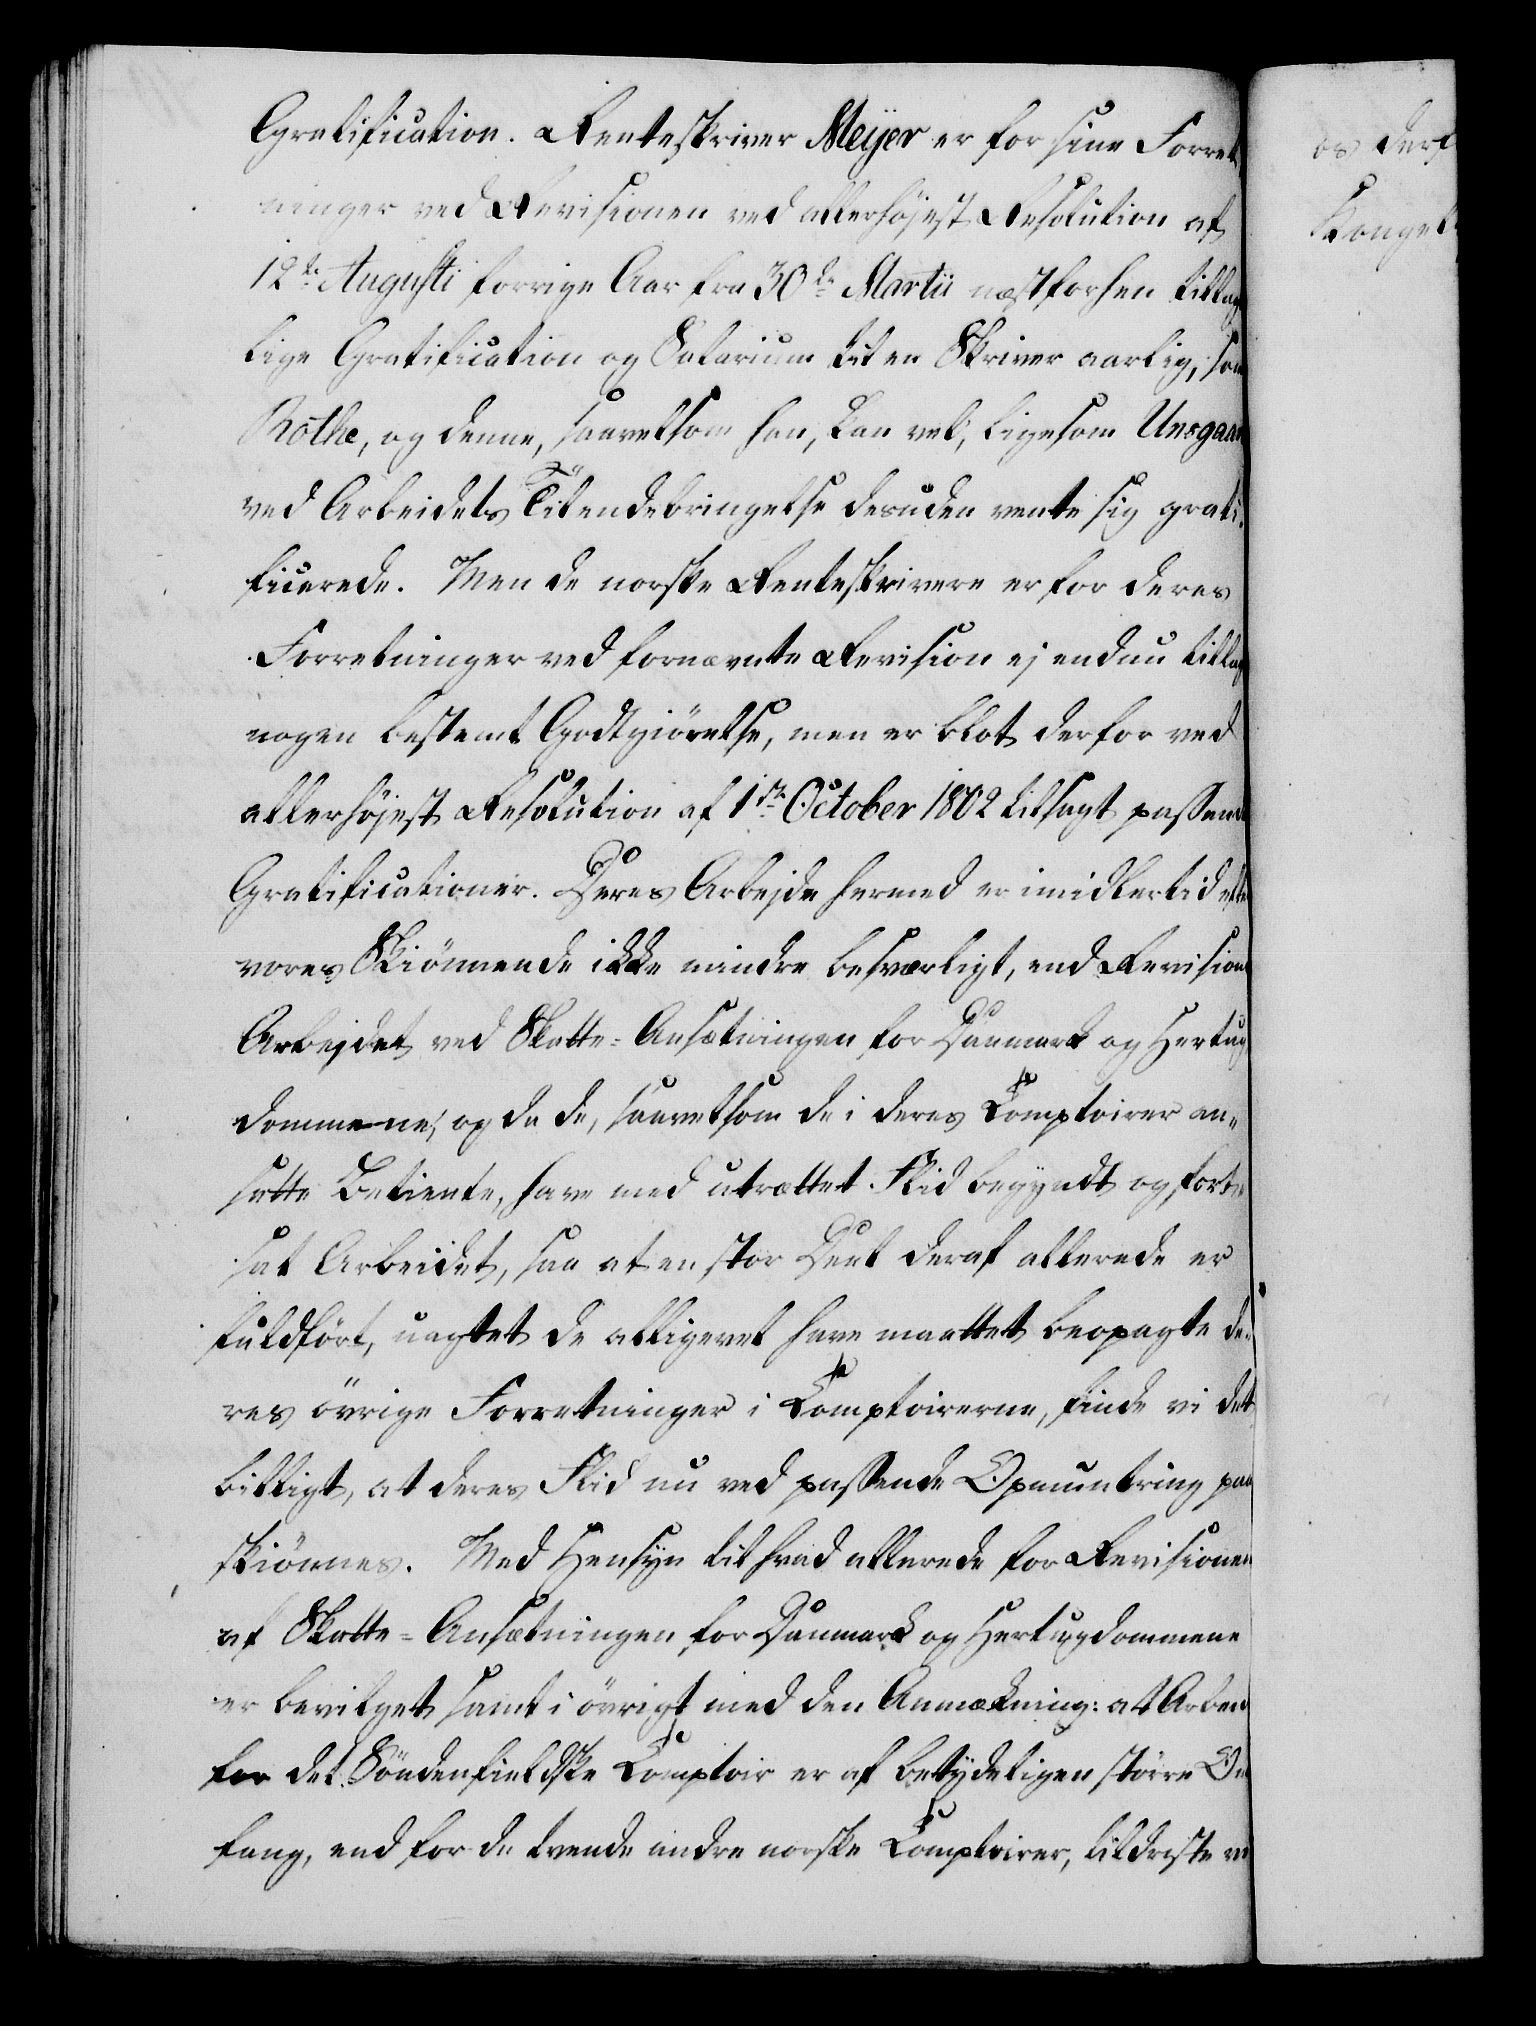 Gratification. Renteskriver Meÿer er for sine Forret
ninger ved Revisionen ved allerhøjest Resolution af
12te Augusti forrige Aar fra 30de Martii næstforhen tillagt
lige Gratification og Salarium til en Skriver aarlig, som
Rothe, og denne, saavelsom han, kan vel, ligesom Unsgaard
ved Arbeidets Tilendebringelse desuden vente sig grati-
ficerede. Men de norske Renteskrivere er for deres
Forretninger ved fornævnte Revision ej endnu tillagt
nogen bestemt Godtgiörelse, men er blot derfor ved
allerhøjest Resolution af 1ste October 1802 tilsagt passende
Gratificationer. Deres Arbejde hermed er imidlertid efter
vores Skiönnende ikke mindre besværligt, end Revisions
Arbejdet ved Skatte-Ansætningen for Danmark og Hertug
dommene; og da de, saavelsom de i deres Comptoirer an-
satte Betiente, have med utrættet Flid begyndt og fort-
sat Arbeidet, saa at en stor Deel deraf allerede er
fuldfört, uagtet de alligevel have maattet beopagte de-
res övrige Forretninger i Comptoirerne, finde vi det
billigt, at deres Flid nu ved passende Opmuntring paa
skiönnes. Med Hensÿn til hvad allerede for Revisionen
af Skatte-Ansætningen for Danmark og Hertugdommene
er bevilget samt i övrigt med den Anmærkning: at Arbeidet
for det Söndenfieldske Comptoir er af betydeligen större Om
fang, end for de tvende andre norske Comptoirer, tildriste vi
os derf
Konget